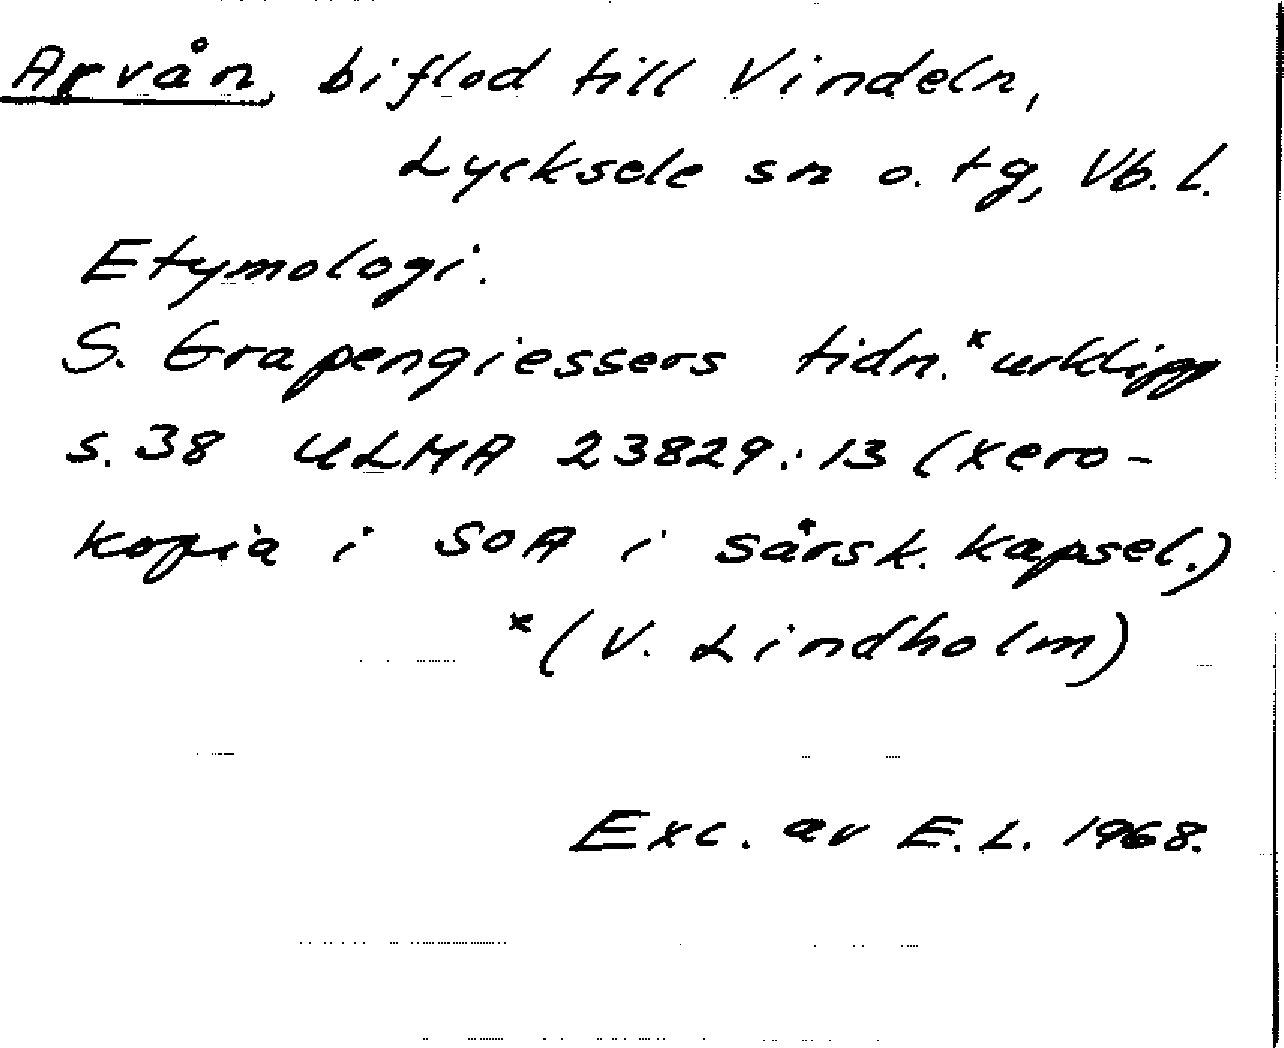 Arvån, biflod till Vindeln,
Lycksele sn o. tg, Vb. l.
Etymologi.
S. Grapengiessers tidn.* urklipp
s. 38 ULMA 23829:13 (xero-
kopia i SOA i särsk. kapsel.)
*(V. Lindholm)
Exc. av E. L. 1968.